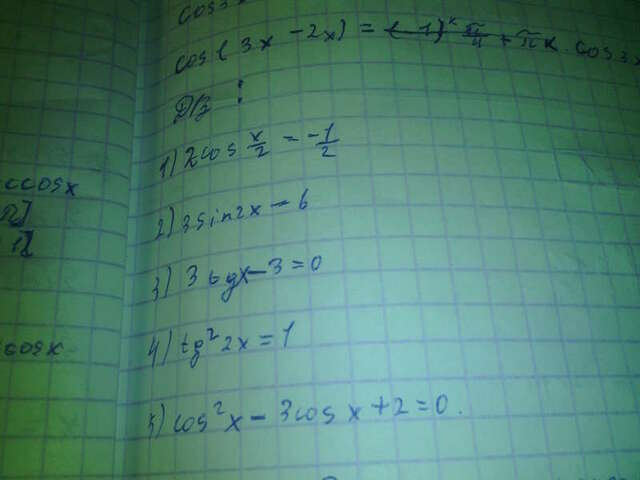 cos3x
cos(3x - 2x) = (-1)^k π/4 + πk cos3x
Д/з :
1) 2cos x/2 = -1/2
2) 3sin2x - 6
3) 3tgx - 3 = 0
4) tg²2x = 1
5) cos²x - 3cosx + 2 = 0.
ccosx
cosx